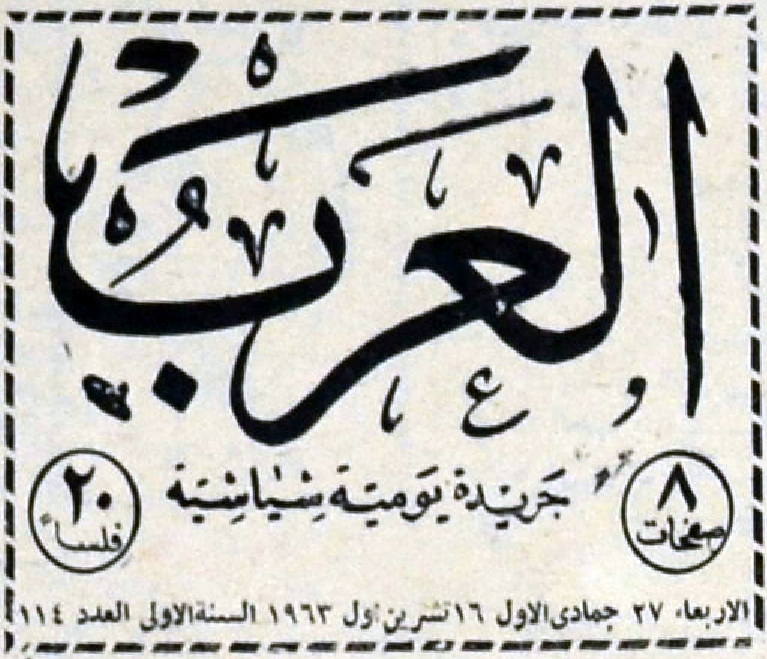 العرب
٨
صفحات
جريدة يومية سياسية
٢٠
فلسا
الاربعاء ٢٧ جمادى الاول ١٦ تشرين اول ١٩٦٣ السنة الاولى العدد ١١٤